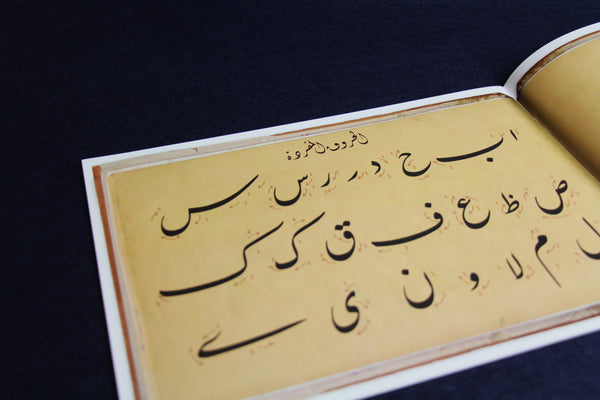 الحروف المفردة
ا ب ح د ر ر س س
ض ظ ع ف ق ک ک
ل م لا و ن ی ے